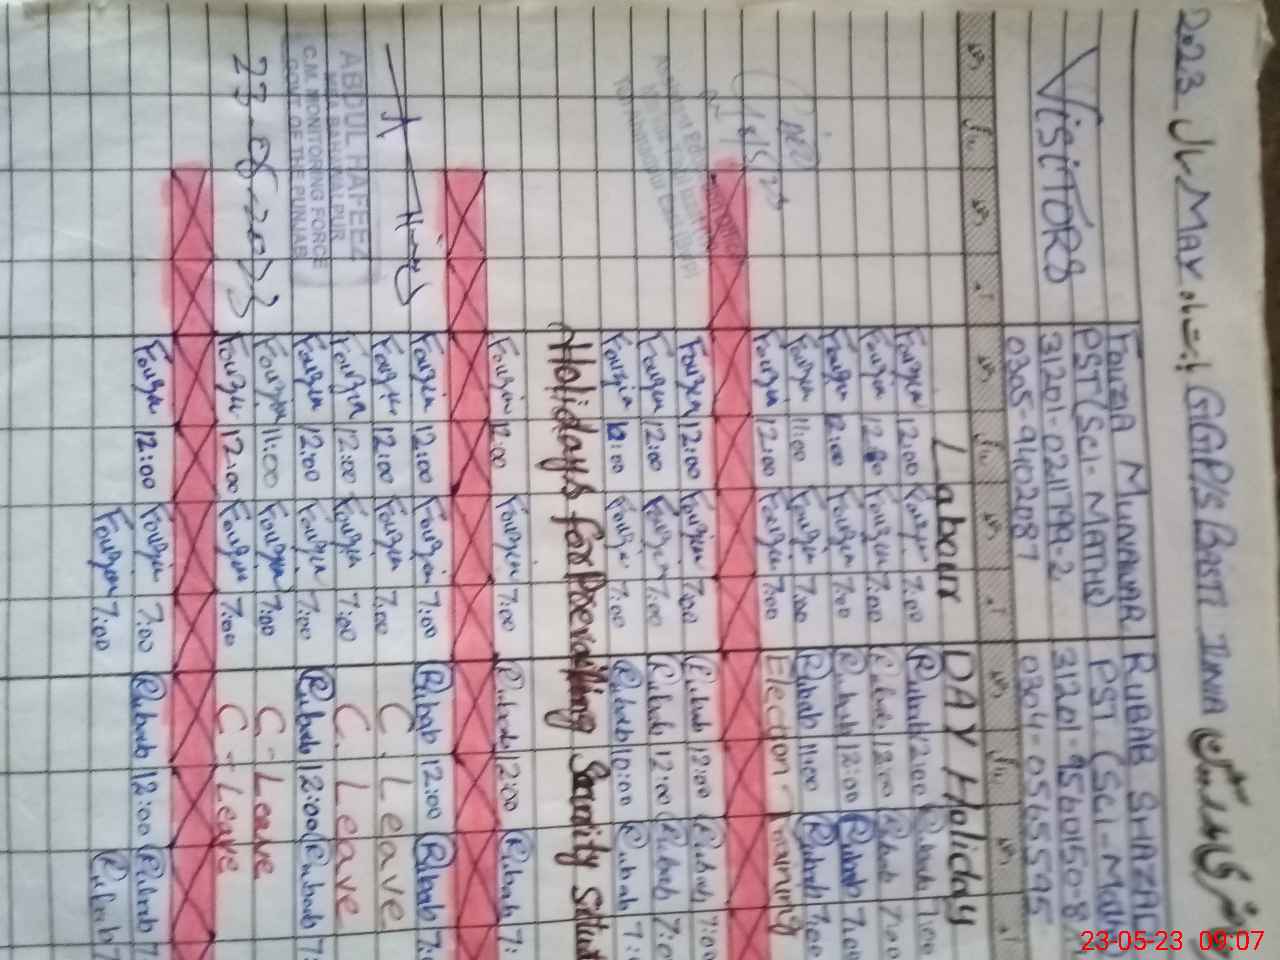 2023 سال MAY بابت ماہ GGP/S BASTI
VISITORS
FOUZIA MUNAWAR
PST (SCI-MATH)
31201-0241799-2
0305-9402087
RUBAB SHAZAD
PST (SCI-Math)
31201-9560150-8
0304-0565595
Labour DAY Holiday
Fouzia 12:00 Fouzia 7:00 Rubab 12:00 Rubab 7:00
Fouzia 12:00 Fouzia 7:00 Rubab 12:00 Rubab 7:00
Fouzia 12:00 Fouzia 7:00 Rubab 12:00 Rubab 7:00
Fouzia 11:00 Fouzia 7:00 Rubab 11:00 Rubab 7:00
Fouzia 12:00 Fouzia 7:00 Election Training
Fouzia 12:00 Fouzia 7:00 Rubab 12:00 Rubab 7:00
Fouzia 12:00 Fouzia 7:00 Rubab 12:00 Rubab 7:00
Fouzia 12:00 Fouzia 7:00 Rubab 10:00 Rubab 7:
Holidays for Prevailing
Fouzia 12:00 Fouzia 7:00 Rubab 12:00 Rubab 7:
Fouzia 12:00 Fouzia 7:00 Rubab 12:00 Rubab 7:
Fouzia 12:00 Fouzia 7:00 C. Leave
Fouzia 12:00 Fouzia 7:00 C. Leave
Fouzia 12:00 Fouzia 7:00 Rubab 12:00 Rubab 7:
Fouzia 11:00 Fouzia 7:00 C-Leave
Fouzia 12:00 Fouzia 7:00 C-Leave
Fouzia 12:00 Fouzia 7:00 Rubab 12:00 Rubab 7
Fouzia 7:00 Rubab 7
ABDUL HAFEEZ
MEA BAHAWALPUR
C.M. MONITORING FORCE
GOVT. OF THE PUNJAB
23-05-2023
23-05-23 09:07